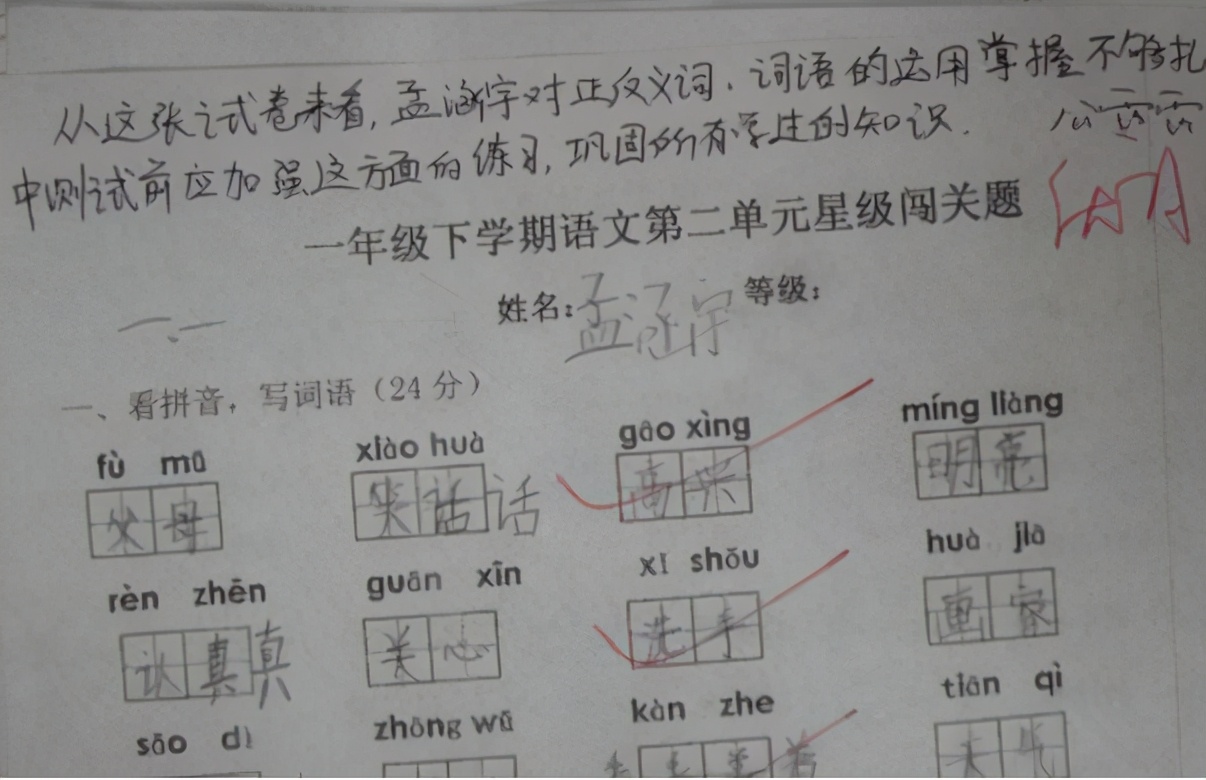 从这张试卷来看,孟涵宇对正反义词、词语的运用掌握不够扎
中测试前应加强这方面的练习,巩固所有学过的知识.
一年级下学期语文第二单元星级闯关题
姓名:孟涵宇 等级:
一、看拼音,写词语(24 分)
fù mǔ xiào huà gāo xìng míng liàng
父母 笑话 话 高兴 明亮
rèn zhēn guān xīn xǐ shǒu huà jiā
认真 真 关心 洗手 画家
sǎo dì zhōng wǔ kàn zhe tiān qì
看着 着 天气